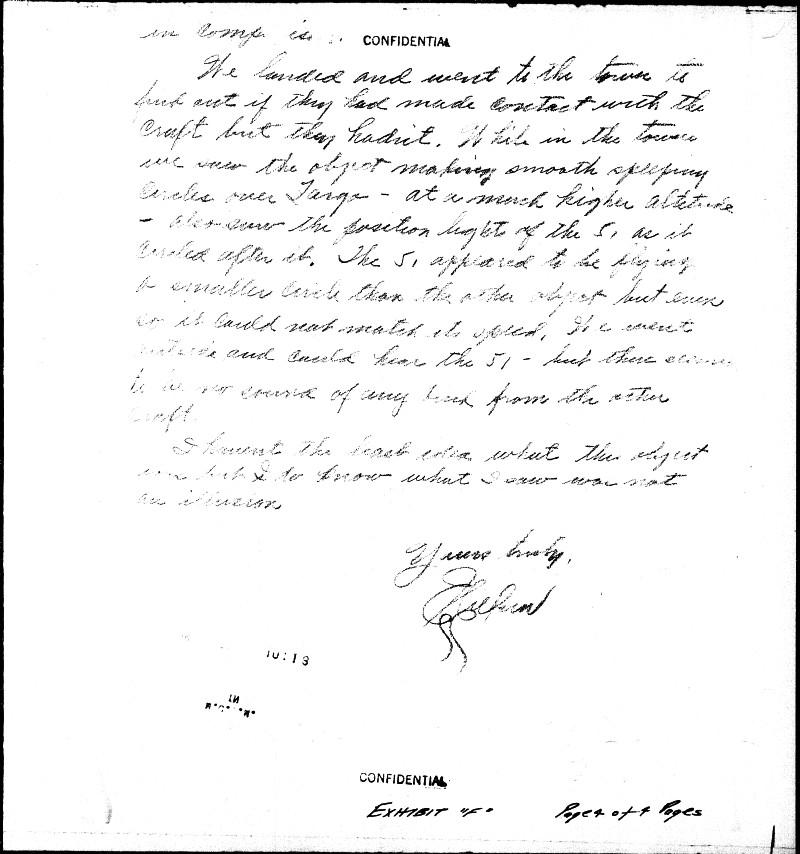 in comp is
CONFIDENTIAL
We landed and went to the tower to
find out if they had made contact with the
craft but they hadn't. While in the tower
we saw the object making smooth speeping
circles over Fargo - at a much higher altitude
- also saw the position lights of the 51 as it
circled after it. The 51 appeared to be flying
a smaller circle than the other object but even
so it could not match its speed. We went
outside and could hear the 51 - but there seems
to be no sound of any kind from the other
craft.
I havent the least idea what this object
was but I do know what I saw was not
an illusion
Yours truly,
10:13
IN
CONFIDENTIAL
EXHIBIT "F"
Page 4 of 4 Pages